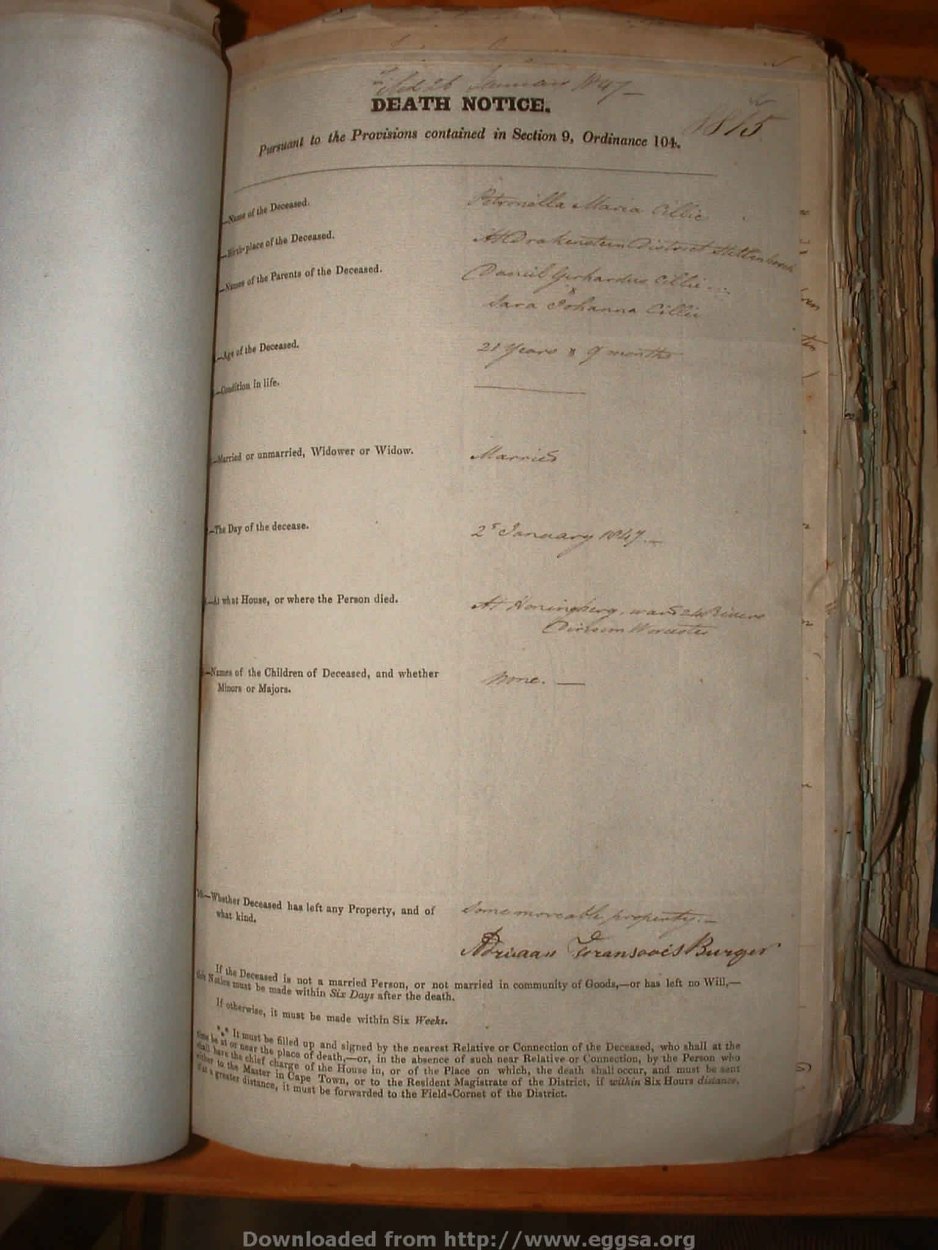 Filed 26 January 1847
DEATH NOTICE.
1815
Pursuant to the Provisions contained in Section 9, Ordinance 104.
—Name of the Deceased. Petronella Maria Cillie
—Birth-place of the Deceased. At Drakenstein District Stellenbosch
—Names of the Parents of the Deceased. Daniel Gerhardus Cillie
&
Sara Johanna Cillie
—Age of the Deceased. 21 Years & 9 months
—Condition in life.
—Married or unmarried, Widower or Widow. Married
—The Day of the decease. January 1847
—At what House, or where the Person died. At Koningberg, ward 24 Rivers
Division Worcester
—Names of the Children of Deceased, and whether None.
Minors or Majors.
—Whether Deceased has left any Property, and of some moveable property.
what kind.
Adriaan Fransoois Burger
If the Deceased is not a married Person, or not married in community of Goods,—or has left no Will,—
this Notice must be made within Six Days after the death.
If otherwise, it must be made within Six Weeks.
*** It must be filled up and signed by the nearest Relative or Connection of the Deceased, who shall at the
time be at or near the place of death,—or, in the absence of such near Relative or Connection, by the Person who
shall have the chief charge of the House in, or of the Place on which, the death shall occur, and must be sent
either to the Master in Cape Town, or to the Resident Magistrate of the District, if within Six Hours distance,
if at a greater distance, it must be forwarded to the Field-Cornet of the District.
Downloaded from http://www.eggsa.org